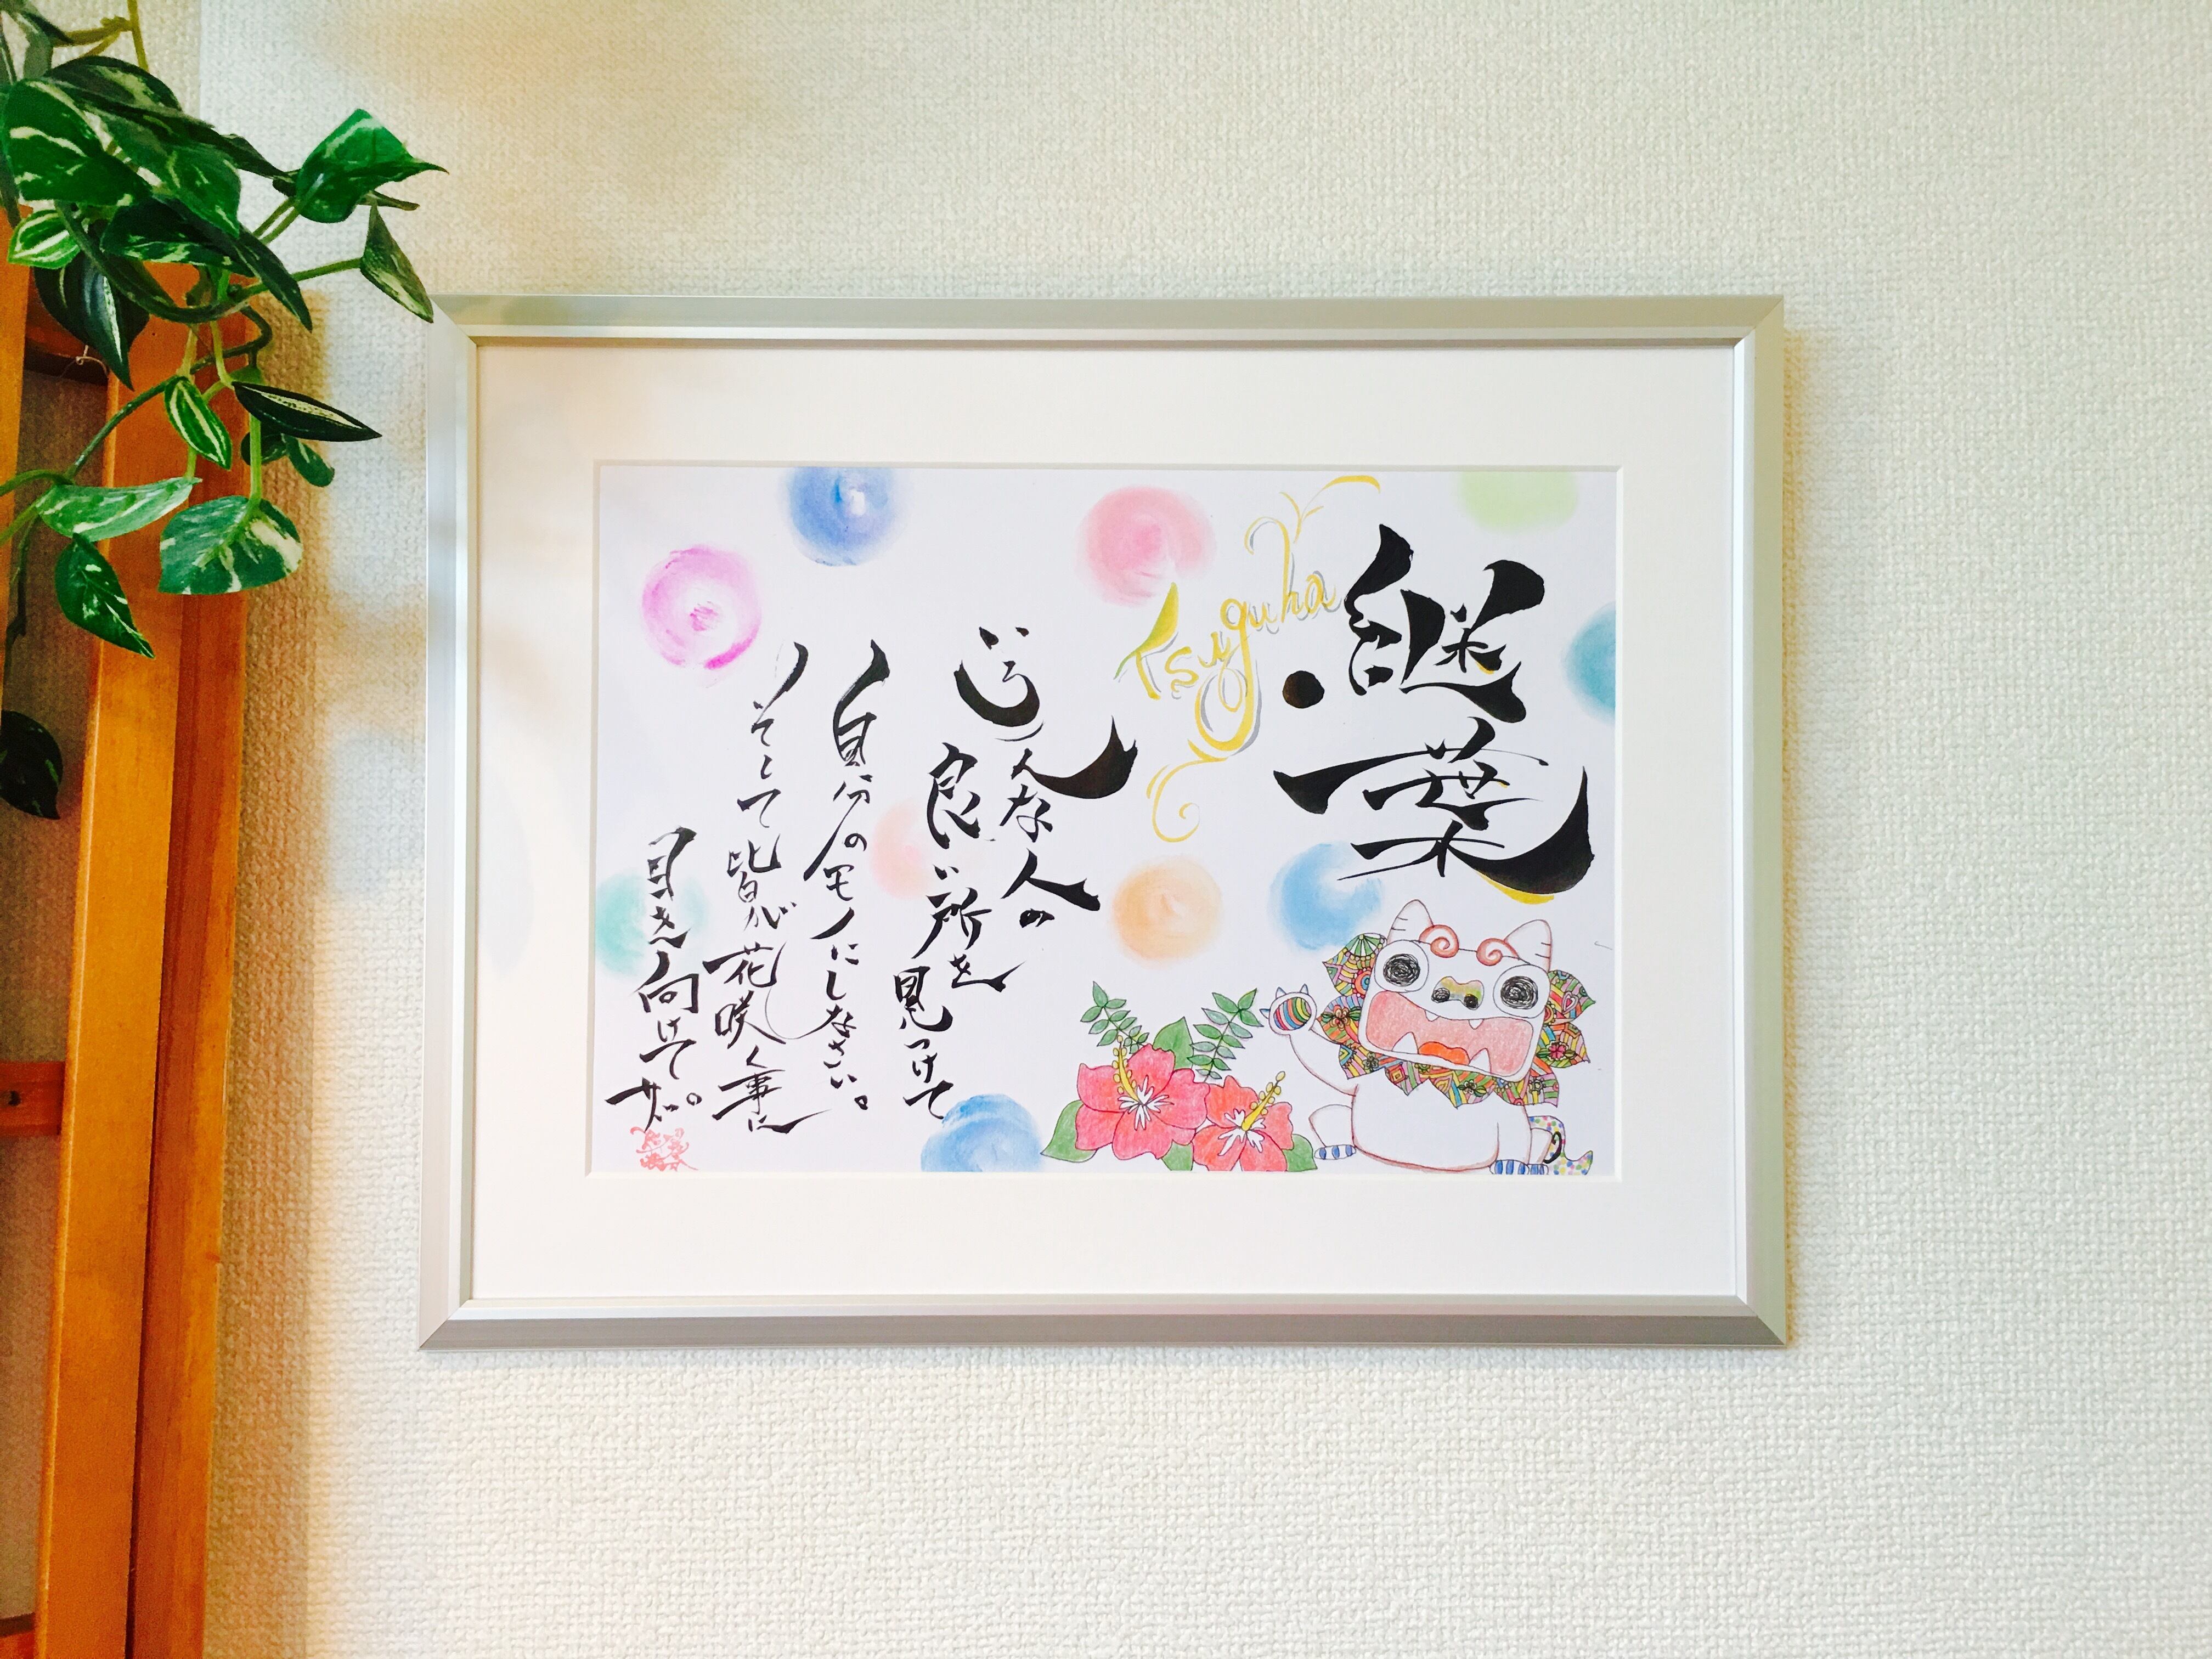 継葉
Tsuguha
いろんな人の
良い所を見つけて
自分のモノにしなさい。
そして皆が花咲く事に
目を向けて